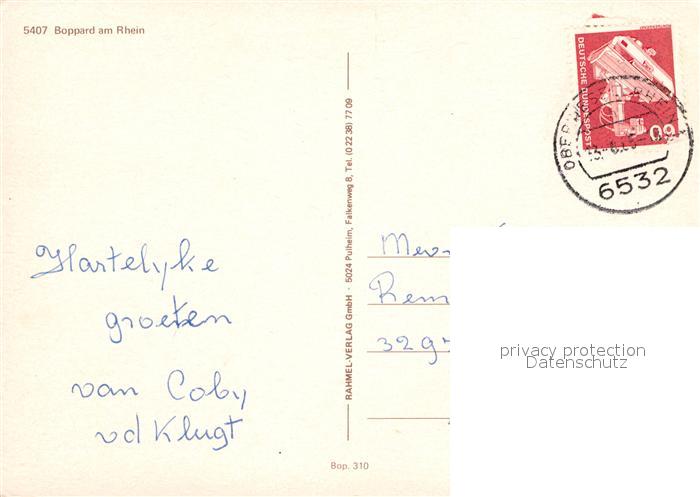 5407 Boppard am Rhein
DEUTSCHE BUNDESPOST
60
6532
Hartelyke
groeten
van Coby
vd Klugt
RAHMEL-VERLAG GmbH · 5024 Pulheim, Falkenweg 8, Tel. (0 22 38) 77 09
Bop. 310
privacy protection
Datenschutz